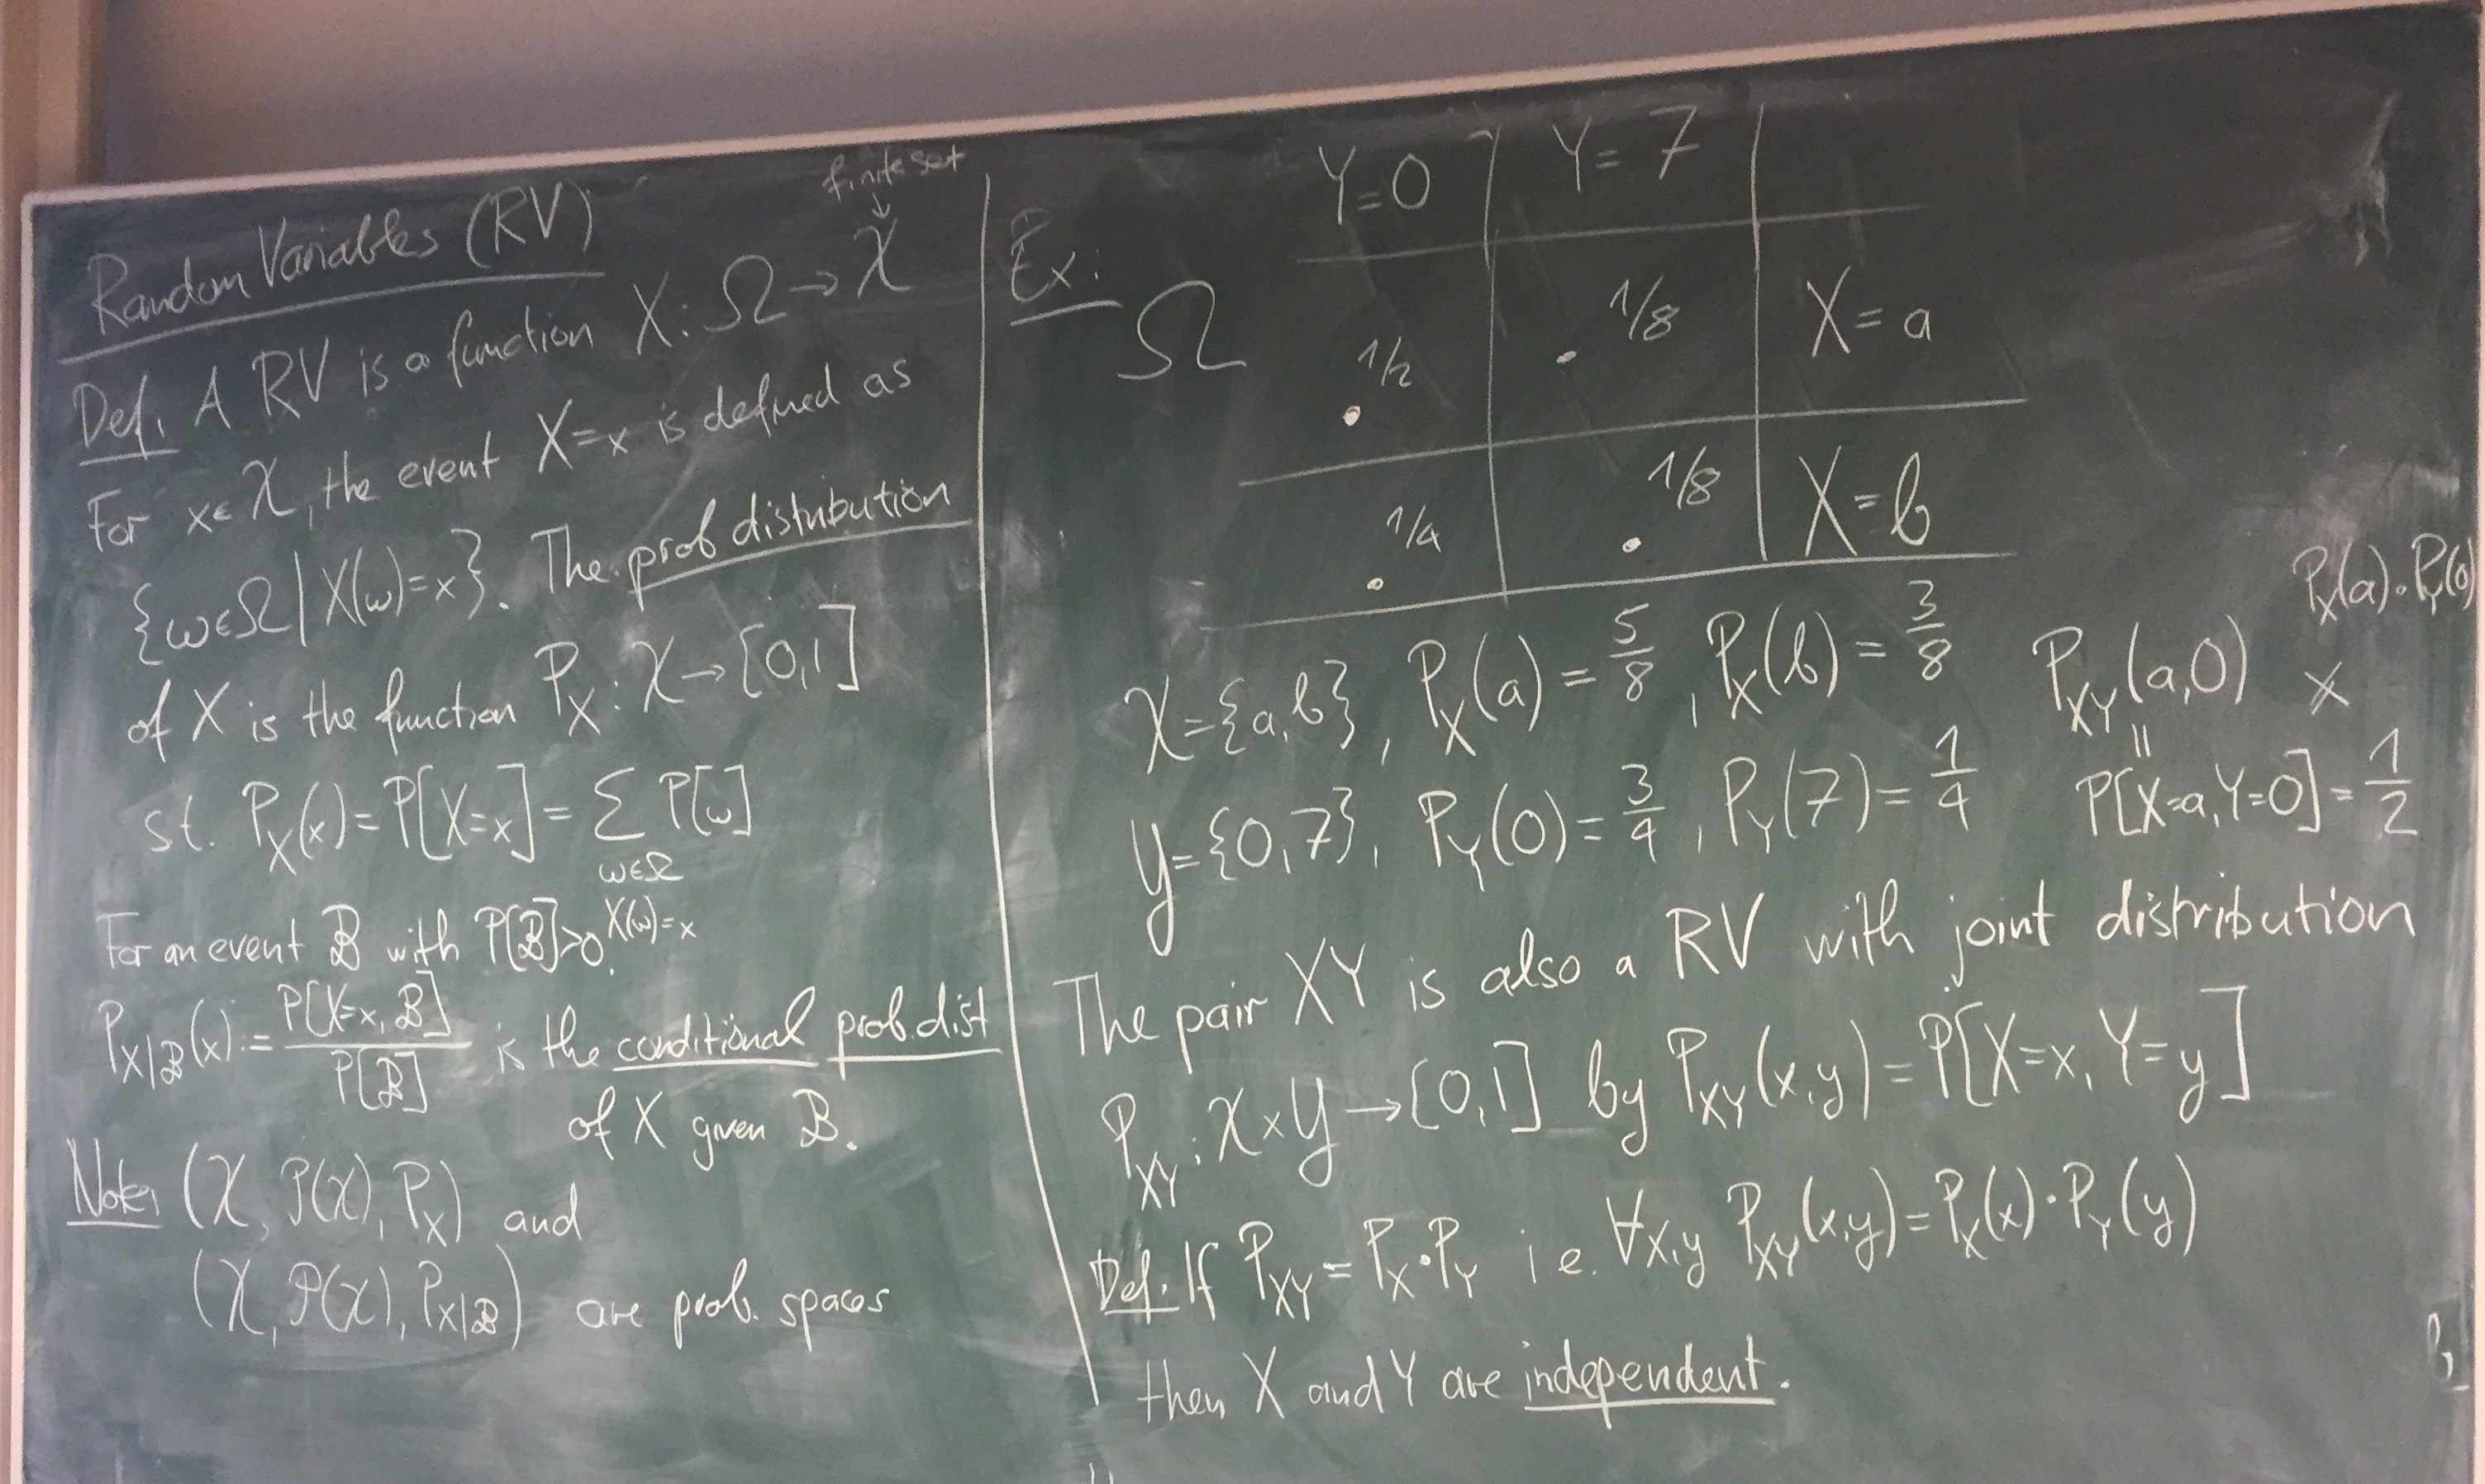 Random Variables (RV)
finite set
↓
Def. A RV is a function X: Ω → 𝒳
For x ∈ 𝒳, the event X=x is defined as
{ω∈Ω | X(ω)=x}. The prob distribution
of X is the function P_X : 𝒳 → [0,1]
st. P_X(x) = P[X=x] = Σ P[ω]
ω∈Ω
X(ω)=x
For an event ℬ with P[ℬ]>0,
P_X|ℬ(x) := P[X=x, ℬ] / P[ℬ] is the conditional prob. dist
of X given ℬ.
Note: (𝒳, 𝒫(𝒳), P_X) and
(𝒳, 𝒫(𝒳), P_X|ℬ) are prob. spaces
Ex:
Ω
Y=0 Y=7
1/2 1/8 X=a
1/4 1/8 X=b
𝒳={a,b}, P_X(a) = 5/8, P_X(b) = 3/8
𝒴={0,7}, P_Y(0) = 3/4, P_Y(7) = 1/4
P_X(a)·P_Y(0)
P_XY(a,0)
=
P[X=a,Y=0] = 1/2
The pair XY is also a RV with joint distribution
P_XY : 𝒳×𝒴 → [0,1] by P_XY(x,y) = P[X=x, Y=y]
Def. If P_XY = P_X·P_Y i.e. ∀x,y P_XY(x,y) = P_X(x)·P_Y(y)
then X and Y are independent.